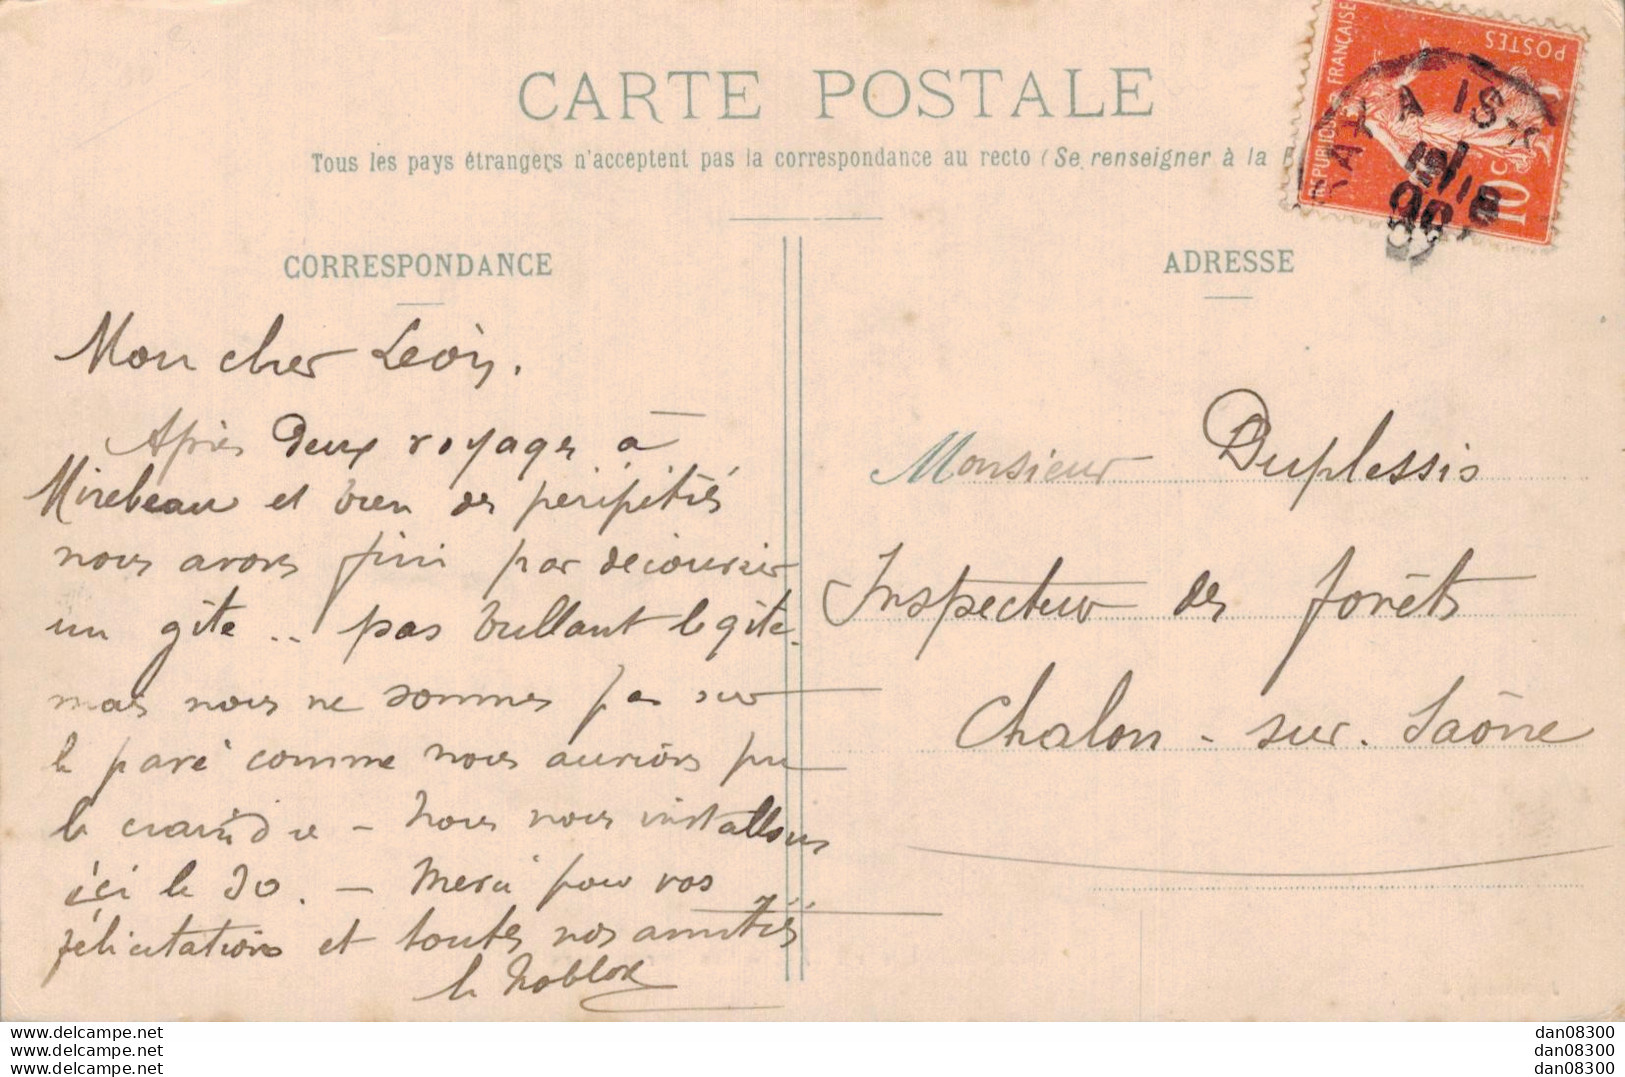 CARTE POSTALE
Tous les pays étrangers n'acceptent pas la correspondance au recto (Se renseigner à la
REPUBLIQUE FRANÇAISE
POSTES
10 c
CORRESPONDANCE
ADRESSE
Mon cher Léon,
Après deux voyages à
Mirebeau et bien des péripéties
nous avons fini par découvrir
un gîte .. pas brillant le gîte
mais nous ne sommes pas sur
le pavé comme nous aurions pu
le craindre - Nous nous installons
ici le 30. - Merci pour vos
félicitations et toutes nos amitiés
Monsieur Duplessis
Inspecteur des forêts
Chalon - sur - Saône
www.delcampe.net
www.delcampe.net
www.delcampe.net
dan08300
dan08300
dan08300